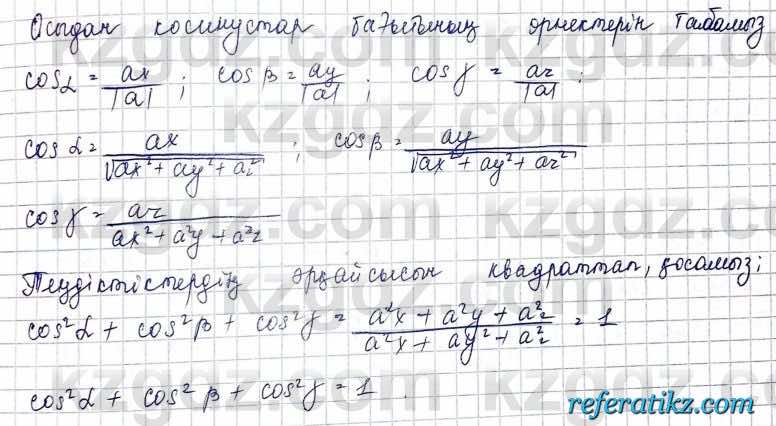 Осыдан косинустар бағытының өрнектерін табамыз
cosα = ax/|a| ; cosβ = ay/|a| ; cosγ = az/|a| ;
cosα = ax/√(ax² + ay² + az²) ; cosβ = ay/√(ax² + ay² + az²)
cosγ = az/(ax² + a²y + a²z)
Теңдіктістердің әрқайсысын квадраттап, қосамыз;
cos²α + cos²β + cos²γ = (a²x + a²y + a²z)/(a²x + ay² + a²z) = 1
cos²α + cos²β + cos²γ = 1
kzgdz.com
referatikz.com